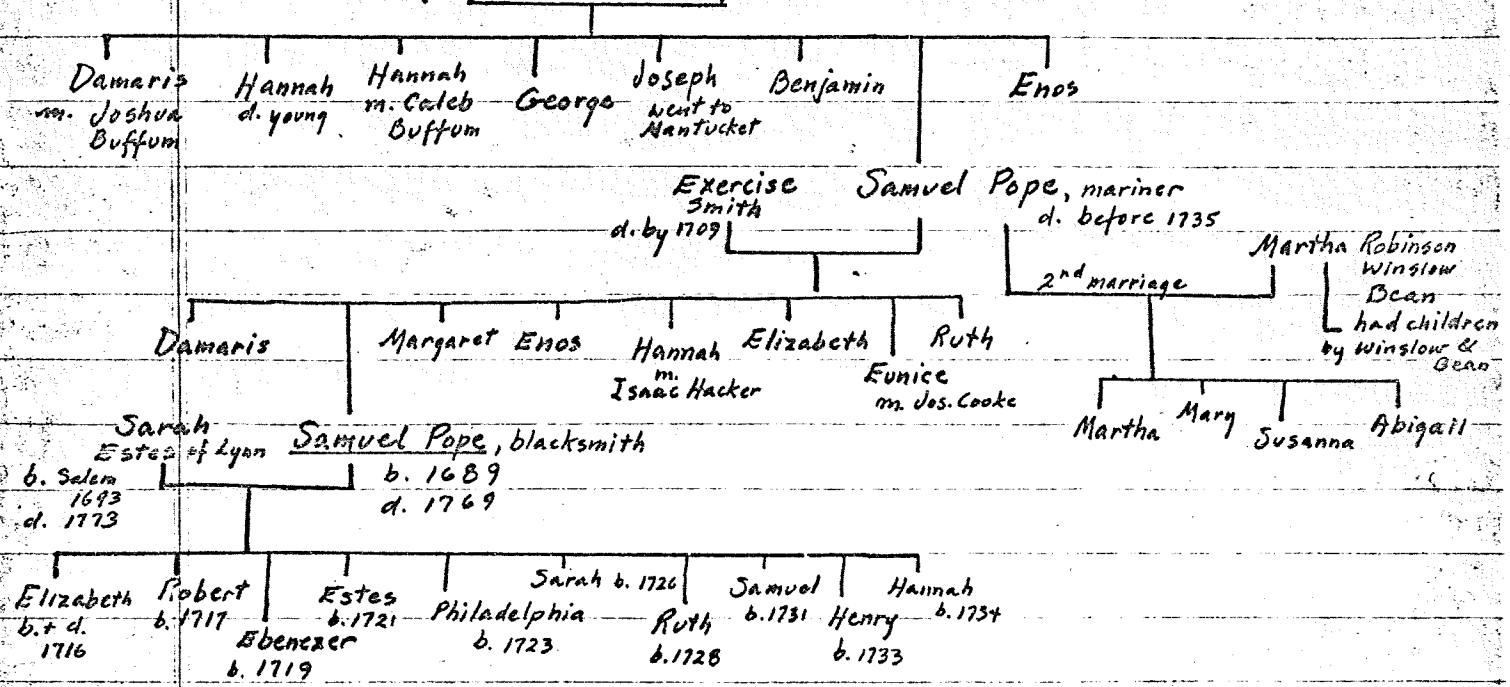 Damaris
m. Joshua
Buffum
Hannah
d. young
Hannah
m. Caleb
Buffum
George
Joseph
went to
Nantucket
Benjamin
Enos
Exercise
Smith
d. by 1709
Samuel Pope, mariner
d. before 1735
Martha Robinson
Winslow
Bean
had children
by Winslow &
Bean
2nd marriage
Damaris
Margaret
Enos
Hannah
m.
Isaac Hacker
Elizabeth
Eunice
m. Jos. Cooke
Ruth
Martha
Mary
Susanna
Abigail
Sarah
Estes of Lynn
b. Salem
1693
d. 1773
Samuel Pope, blacksmith
b. 1689
d. 1769
Elizabeth
b. + d.
1716
Robert
b. 1717
Ebenezer
b. 1719
Estes
b. 1721
Philadelphia
b. 1723
Sarah b. 1726
Ruth
b. 1728
Samuel
b. 1731
Henry
b. 1733
Hannah
b. 1734